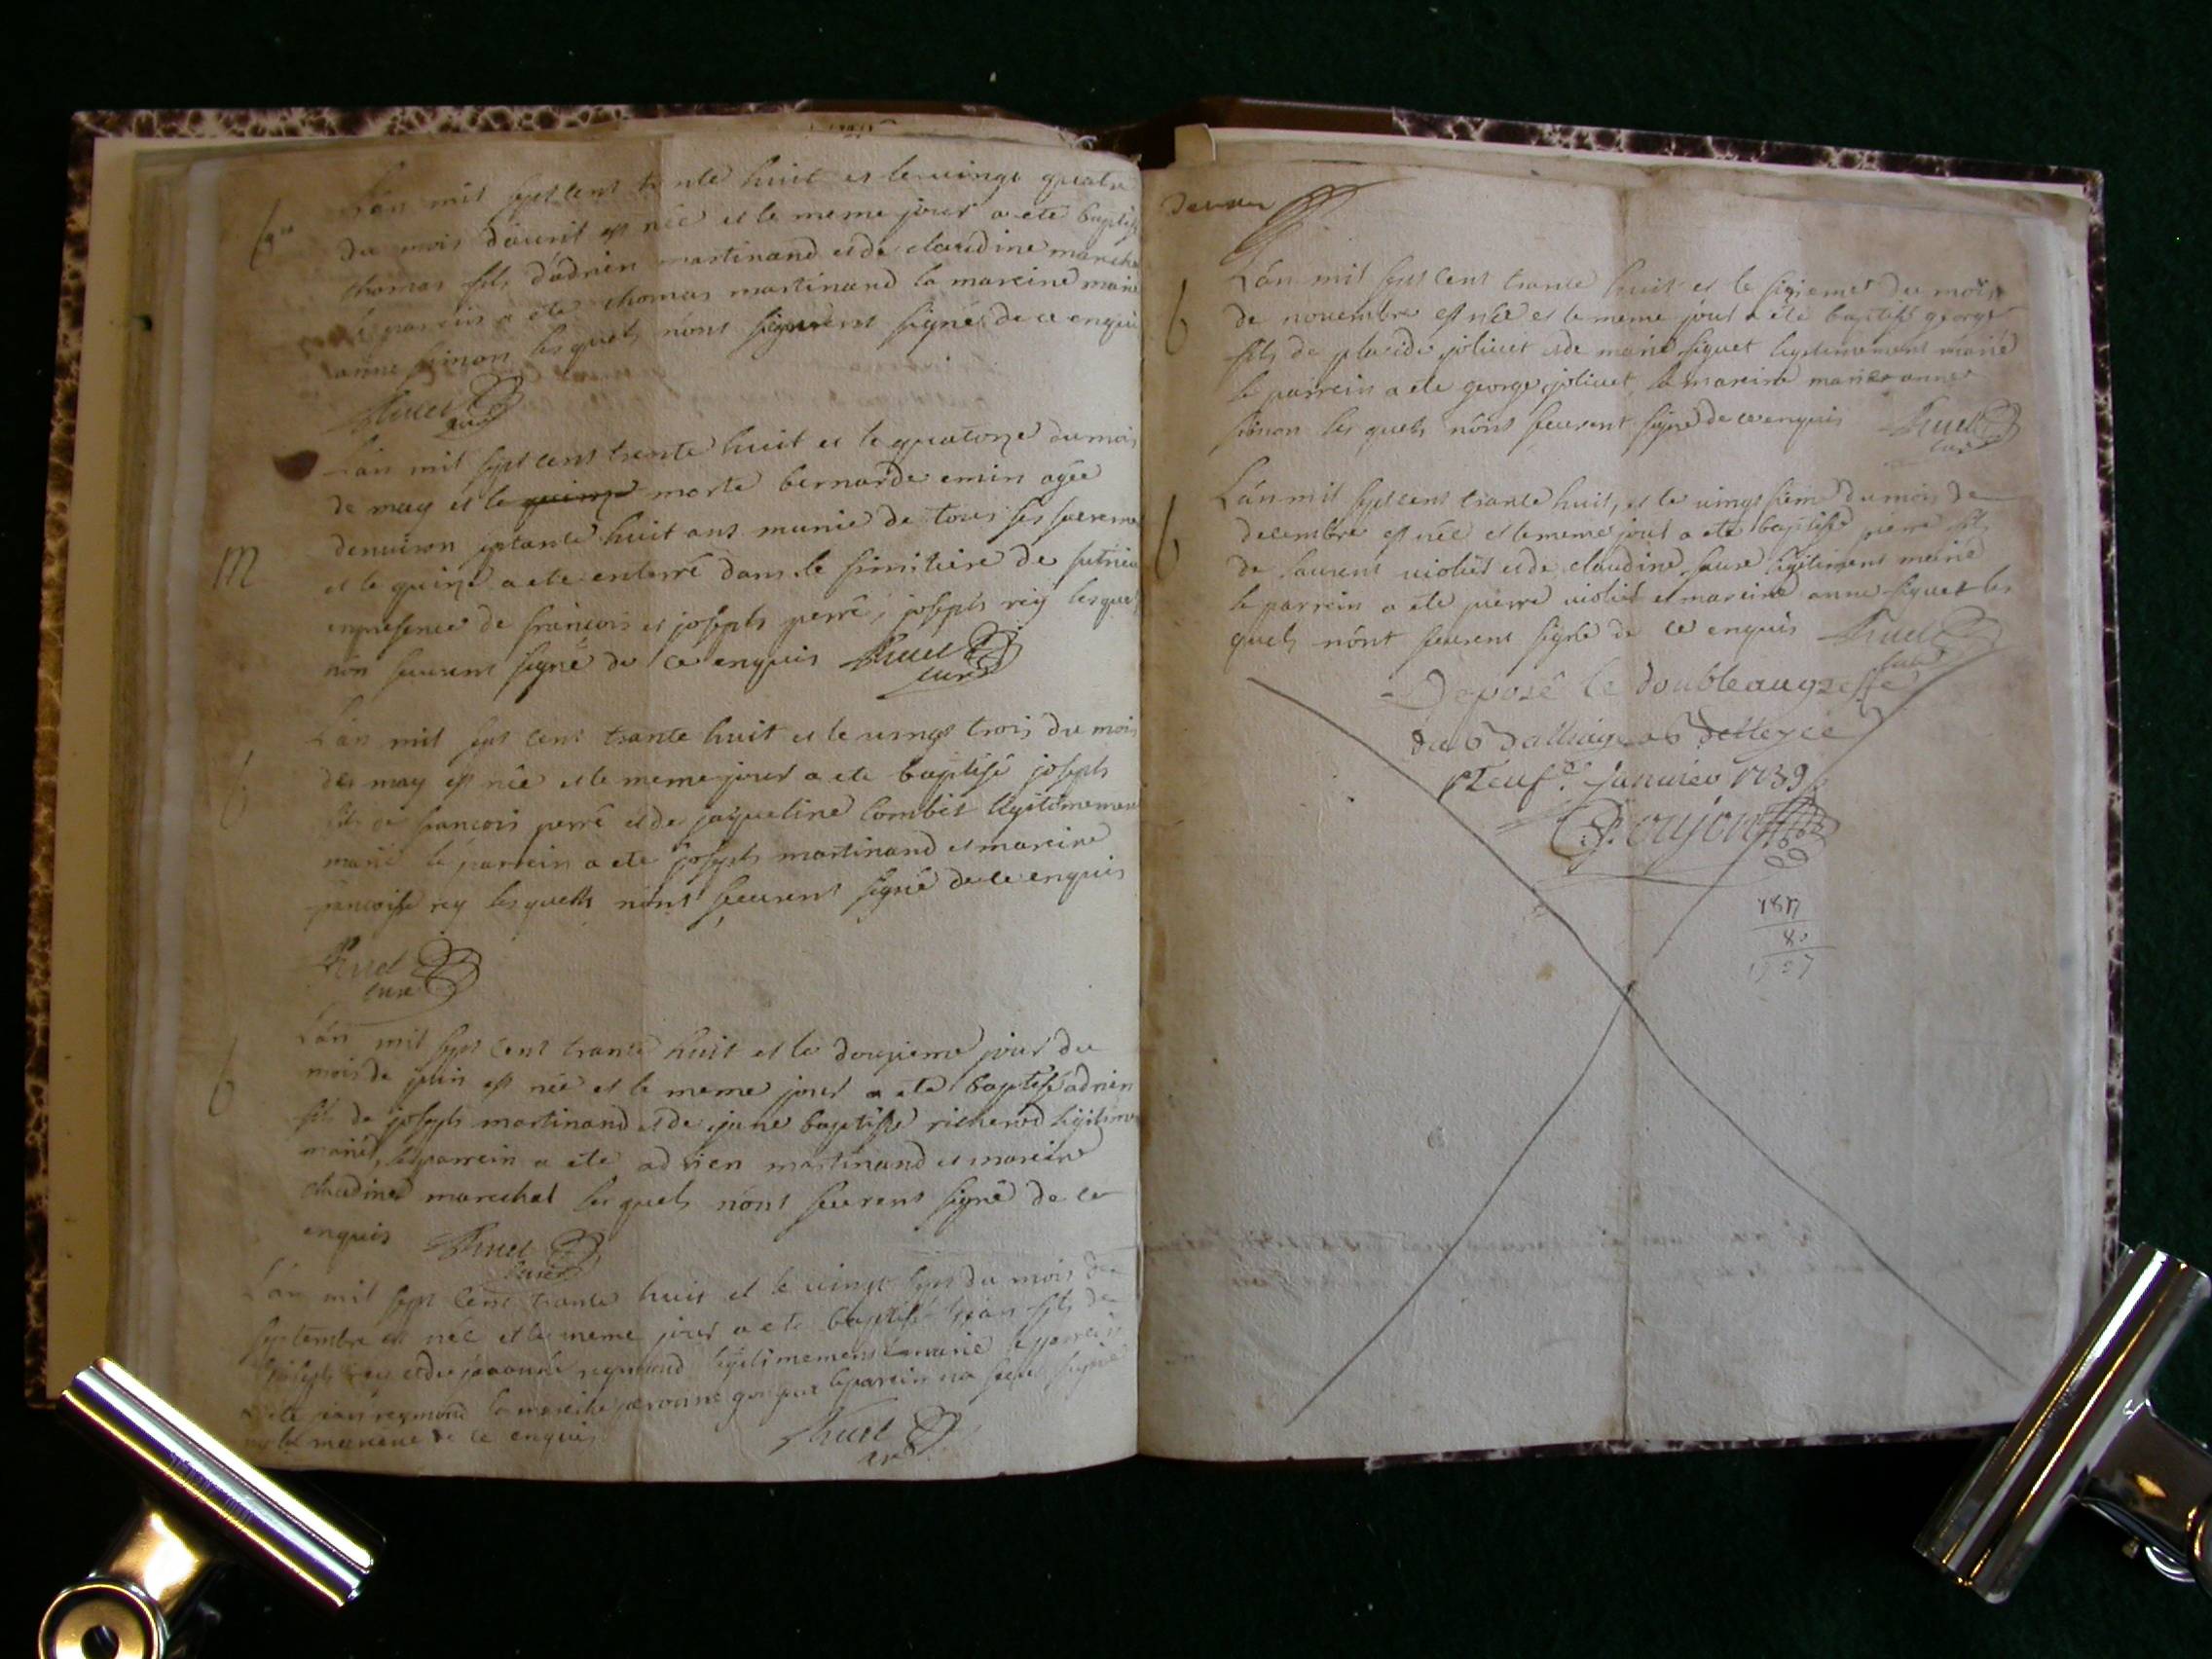 b
L'an mil sept cent trante huit et le vingt quatre
du mois d'auril est née et le meme jour a ete baptisé
thomas fils d'adrien martinand et de claudine marecha
le parrein a ete thomas martinand la mareine marie
anne simon les quels n'ont signé de ce enquis
Ruel
curé
L'an mil sept cent trante huit et le quatorze du mois
de may et le morte bernarde emin agée
denuiron septante huit ans munie de tous ses sacreme
M
et le quinze a ete enterré dans le simitiere de
en presence de francois et joseph perré, joseph rey lesquel
n'on seurent signé de ce enquis Ruel
curé
L'an mil sept cent trante huit et le vingt trois du mois
de may est née et le meme jour a ete baptisé joseph
b
fils de francois perré et de jaqueline combet legitimement
marié le parrein a ete joseph martinand et mareine
francoise rey les quels n'ont seurent signé de ce enquis
Ruel
curé
L'an mil sept cent trante huit et le douzieme jour du
b
mois de juin est née et le meme jour a ete baptisé adrien
fils de joseph martinand et de jane baptiste richerod legitime
marié, le parrein a ete adrien martinand et mareine
claudine marechal les quels n'ont seurent signé de ce
enquis Ruel
curé
L'an mil sept cent trante huit et le vingt sept du mois de
septembre est née et le meme jour a ete baptisé jean fils de
joseph rey et de reymond legitimement marié le parrein
a ete jean reymond la mareine le parrein na signé
ny la mareine de ce enquis
Ruel
curé
L'an mil sept cent trante huit et le sixieme du mois
b
de nouembre est née et le meme jour a ete baptisé george
fils de placide joliuet et de marie siguet legitimement marié
le parrein a ete george joliuet, la mareine marie anne
simon les quels n'ont seurent signé de ce enquis Ruel
curé
L'an mil sept cent trante huit, et le vingt sieme du mois de
b
decembre est née et le meme jour a ete baptisé pierre fils
de laurent uiolet et de claudine legitiment marié
le parrein a ete pierre uiolet et mareine anne siguet les
quels n'ont seurent signé de ce enquis Ruel
curé
Deposé le double au greffe
du Balliage de Belley ce
neuf. januier 1739
Goujon
1817
80
1737